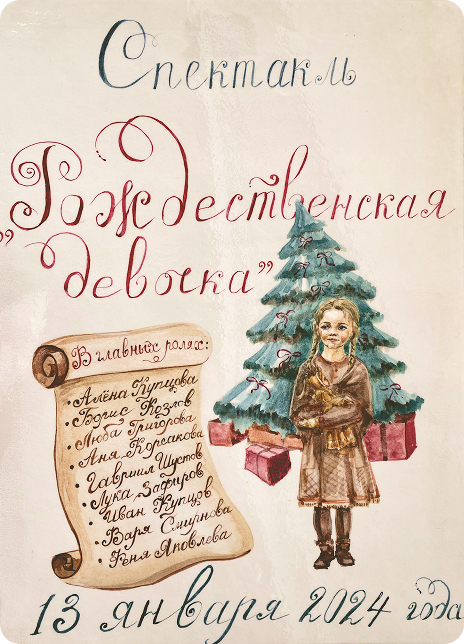 Спектакль
„Рождественская
девочка”
В главных ролях:
• Алёна Купцова
• Борис Козлов
• Люба Григорова
• Аня Корсакова
• Гавриил Шустов
• Лука Зафиров
• Иван Купцов
• Варя Смирнова
• Геня Яковлева
13 января 2024 года